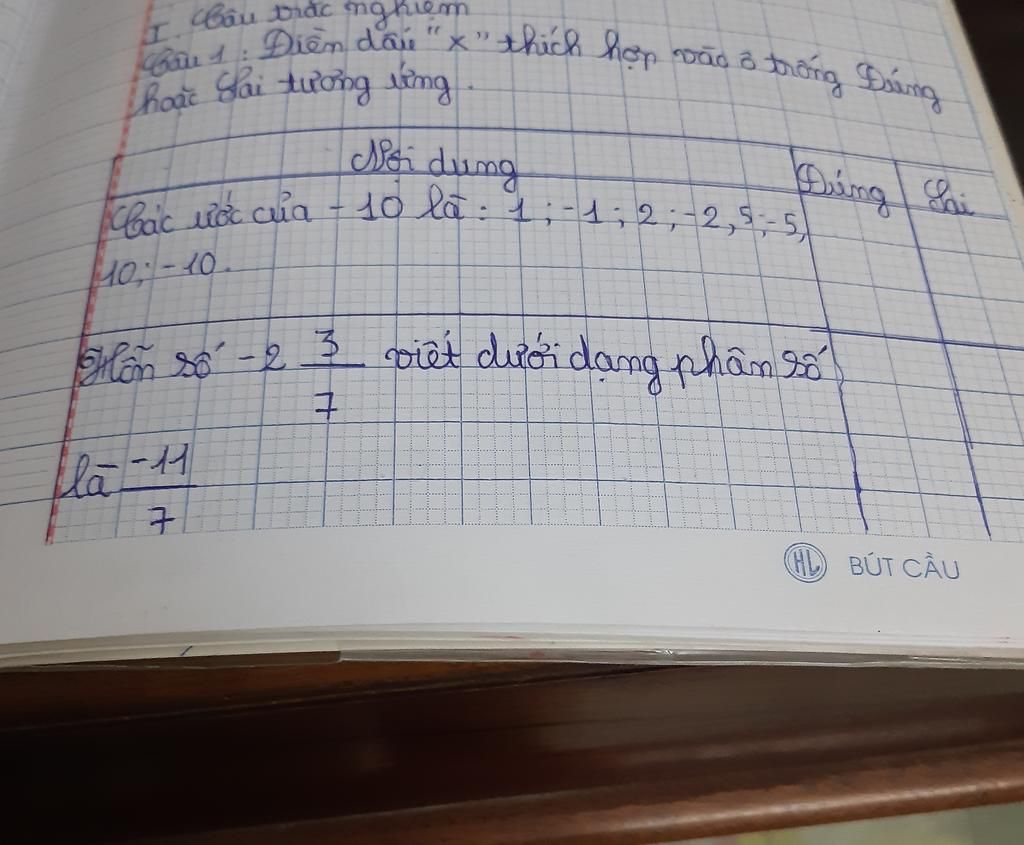 I. Câu trắc nghiệm
Câu 1: Điền dấu "x" thích hợp vào ô trống Đúng
hoặc Sai tương ứng.
Nội dung Đúng Sai
Các ước của -10 là: 1; -1; 2; -2, 5; -5,
10; -10.
Hỗn số -2 3/7 viết dưới dạng phân số
là -11/7
HL BÚT CẦU